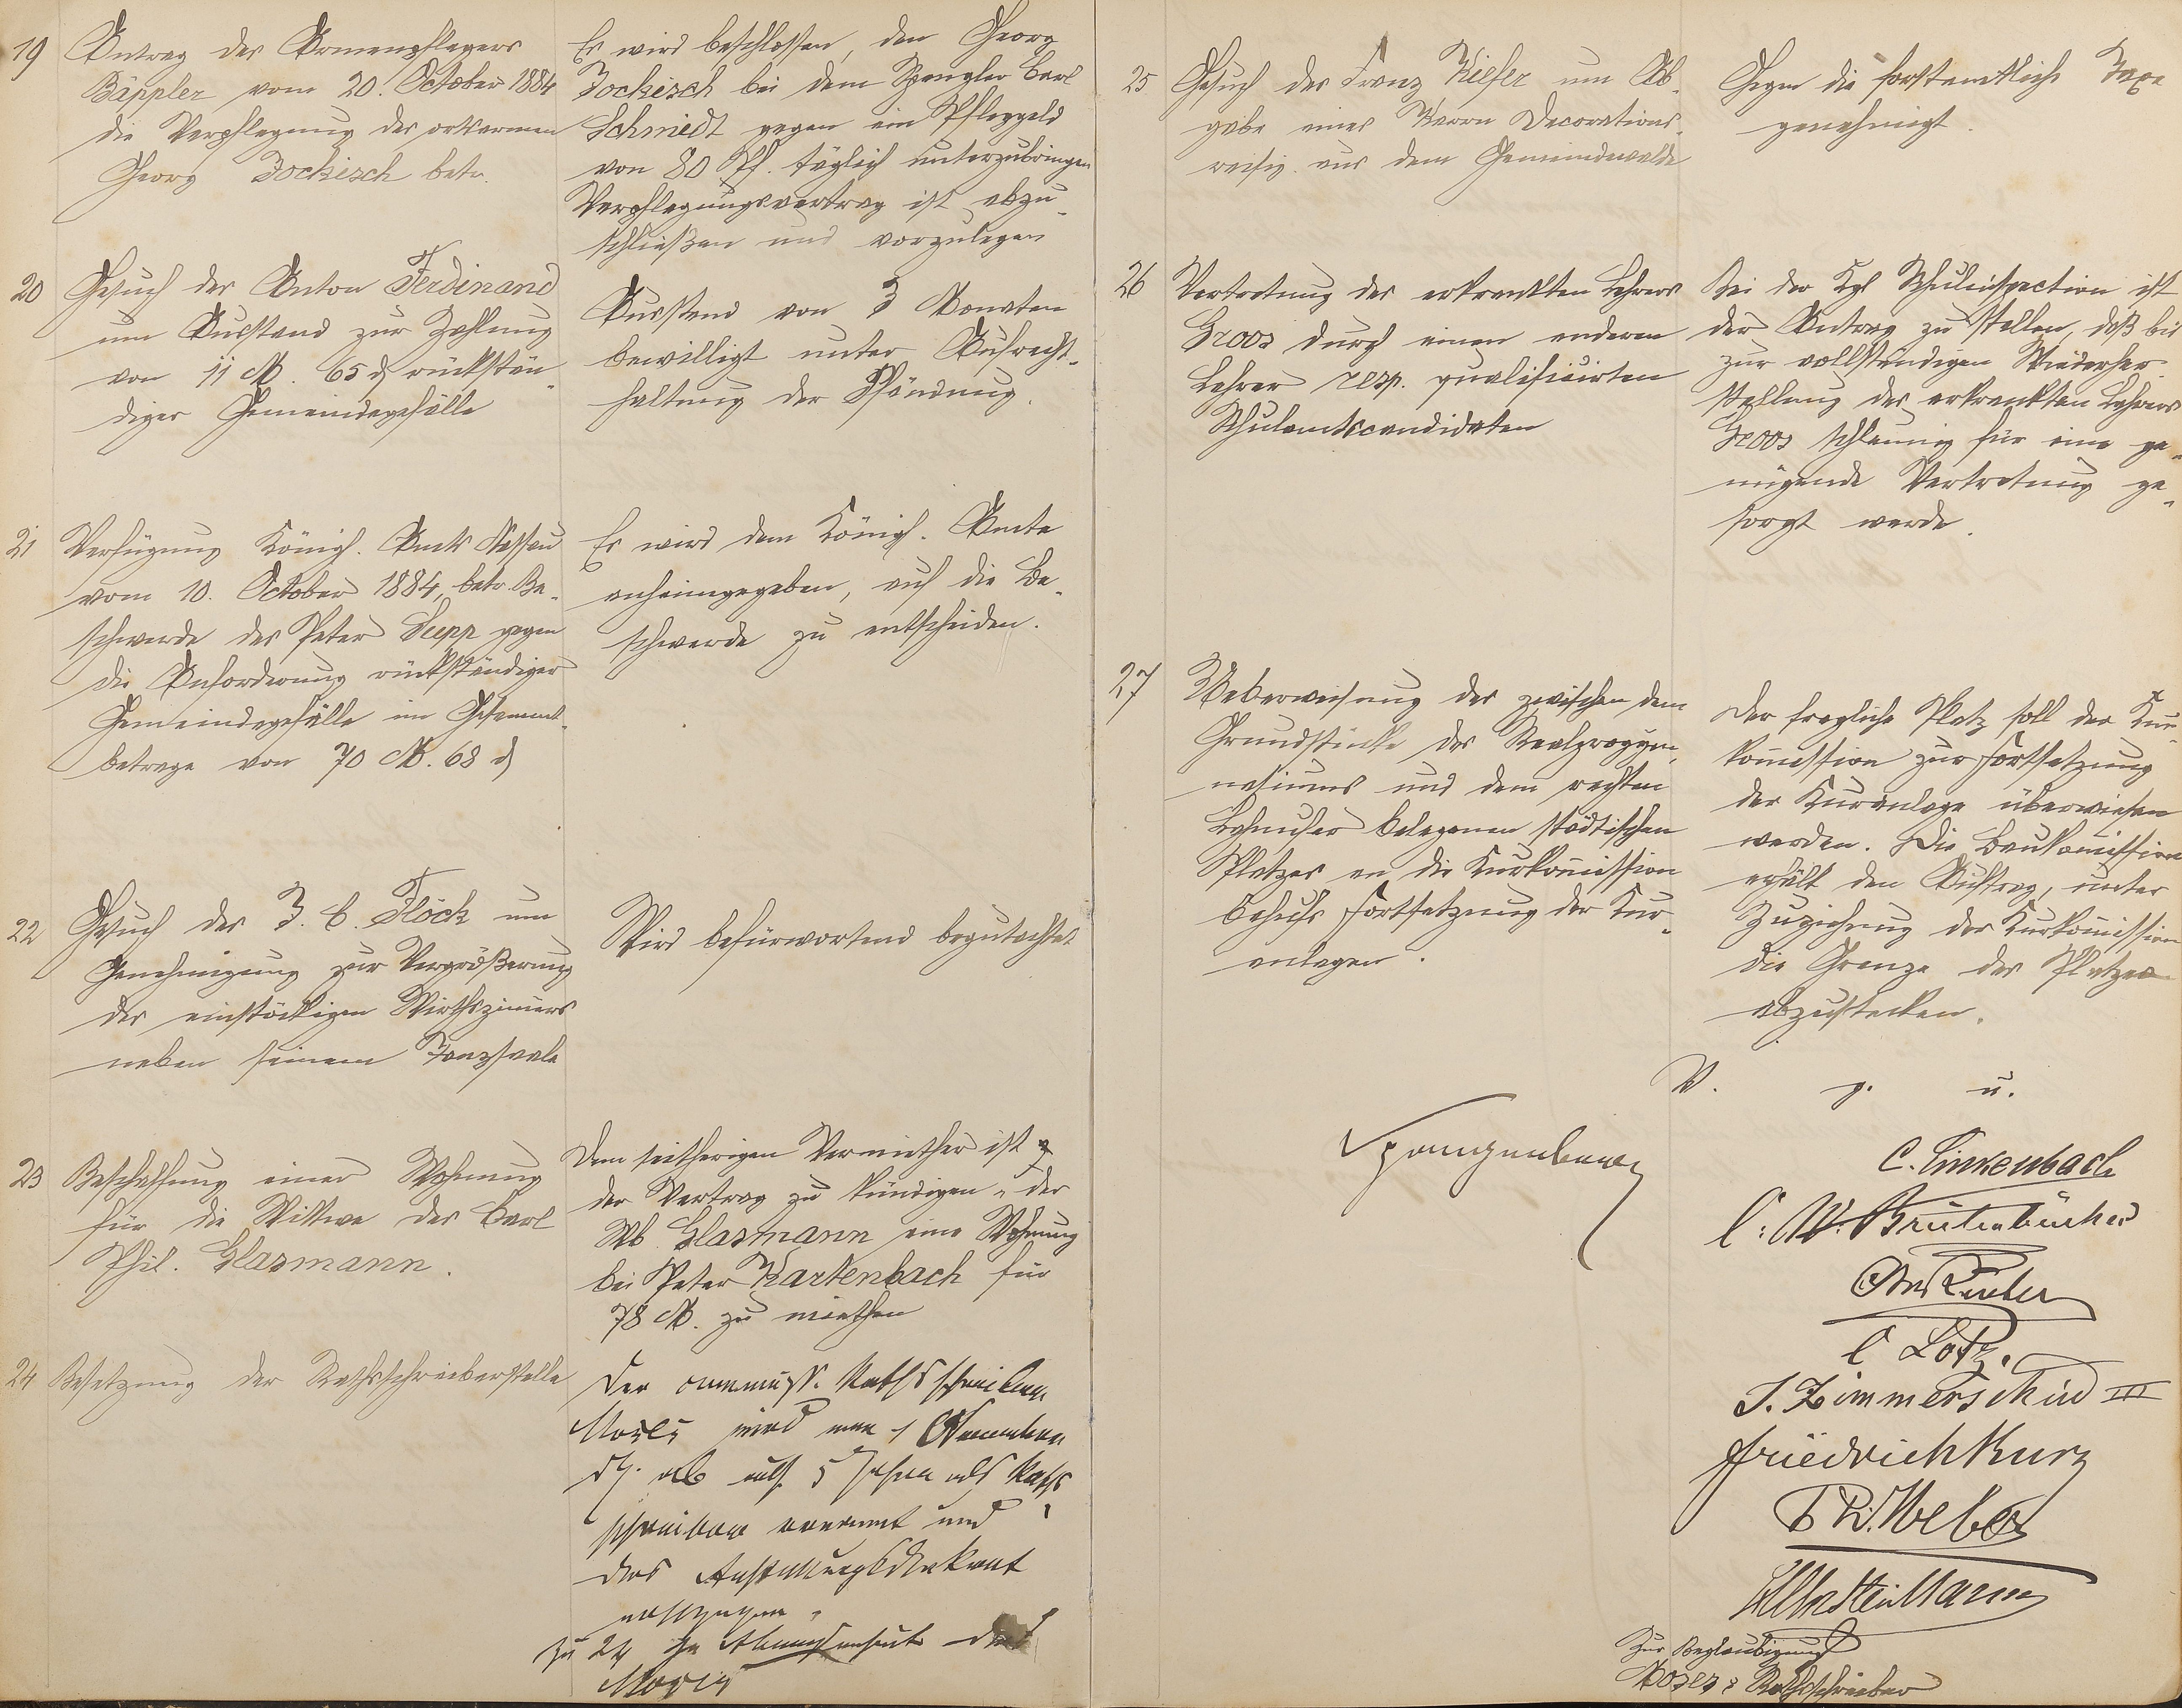 19
Antrag des Armenpflegers
Bäppler vom 20. October 1884
die Verpflegung des ortsarmen
Georg Jockisch betr.
Es wird beschlossen, den Georg
Jockisch bei dem Spengler Carl
Schmidt gegen ein Pfleggeld
von 80 Pf. täglich unterzubringen
Verpflegungsvertrag ist abzu-
schließen und vorzulegen
20
Gesuch des Anton Ferdinand
um Ausstand zur Zahlung
von 11 M. 65 d rückstän-
diger Gemeindegefälle
Ausstand von 3 Monaten
bewilligt unter Aufrecht-
haltung der Pfändung.
21
Verfügung Königl. Amts Nassau
vom 10. October 1884, betr. Be-
schwerde des Peter Supp gegen
die Anforderung rückständiger
Gemeindegefälle im Gesammt-
betrage von 70 M. 68 d
Es wird dem Königl. Amte
anheimgegeben, auf die Be-
schwerde zu entscheiden.
22
Gesuch des J. C. Flöck um
Genehmigung zur Vergrößerung
des einstöckigen Wirthszimers
neben seinem Tanzsaale
Wird befürwortend begutachtet
23
Beschaffung einer Wohnung
für die Wittwe des Carl
Phil. Glasmann.
Dem seitherigen Vermiether ist
der Vertrag zu kündigen u. der
Wb. Glasmann eine Wohnung
bei Peter Kartenbach für
78 M. zu miethen
24
Besetzung der Rathsschreiberstelle
Der commiss. Rathsschreiber
Moses wird vom 1 November
ds. ab auf 5 Jahre als Raths-
schreiber ernannt und
das Anstellungsdekret
vollzogen.
zu 24 In Abwesenheit des
Moses
25
Gesuch des Franz Kiefer um Ab-
gabe eines Karrn Decorations-
reisig aus dem Gemeindewalde
Gegen die forstamtliche Taxe
genehmigt.
26
Vertretung des erkrankten Lehrers
Groos durch einen anderen
Lehrer resp. qualificirten
Schulamtscandidaten
Bei der Kgl Schulinspection ist
der Antrag zu stellen, daß bis
zur vollständigen Wiederher-
stellung des erkrankten Lehrers
Groos schleunig für eine ge-
nügende Vertretung ge-
sorgt werde.
27
Ueberweisung des zwischen dem
Grundstücke des Realprogym-
nasiums und dem rechten
Lahnufer belegenen städtischen
Platzes an die Kurkomission
behufs Fortsetzung der Kur-
anlagen.
Der fragliche Platz soll der Kur-
komission zur Fortsetzung
der Kuranlage überwiesen
werden. Die Baukomission
erhält den Auftrag, unter
Zuziehung der Kurkomission
die Grenze des Platzes
abzustecken.
V. g. u.
Spangenberg
C. Linkenbach
C. W. Breitenbücher
C Lotz.
J. Zimmerschied III
Friedrich Kurz
Weber
Zur Beglaubigung
Moses, Rathschreiber